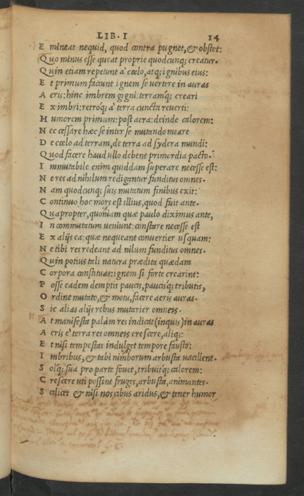 LIB. I 14
E mineat nequid, quod contra pugnet, & obstet:
Q uo minus esse queat proprie quodcunq; creatur.
Q uin etiam repetunt a' cœlo, atq; ignibus eius:
E t primum faciunt ignem se uertere in auras
A eris: hinc imbrem gigni: terramq; creari
E x imbri: retroq; a' terra cuncta reuerti:
H umorem primum: post aera: deinde calorem:
N ec cessare hæc se inter se mutando meare
D e cœlo ad terram, de terra ad sydera mundi:
Q uod facere haud ullo debent primordia pacto.
I mmutabile enim quiddam superare necesse est:
N e res ad nihilum redigantur funditus omnes.
N am quodcunq; suis mutatum finibus exit:
C ontinuo hoc mors est illius, quod fuit ante.
Q uapropter, quoniam quæ paulo diximus ante,
I n commutatum ueniunt: constare necesse est
E x alijs ea; quæ nequeant conuertier usquam:
N e tibi res redeant ad nilum funditus omnes.
Q uin potius tali natura prædita quædam
C orpora constituas: ignem si forte crearint:
P osse eadem demptis paucis, paucisq; tributis,
O rdine mutato, & motu, facere aeris auras.
S ic alias alijs rebus mutarier omneis.
A t manifesta palam res indicat (inquis) in auras
A eris e' terra res omneis crescere, aliq;:
E t nisi tempestas indulget tempore fausto:
I mbribus, & tabi nimborum arbusta uacillent.
S olq; sua pro parte fouet, tribuitq; calorem:
C rescere uti possint fruges, arbusta, animantes.
S cilicet & nisi nos cibus aridus, & tener humor